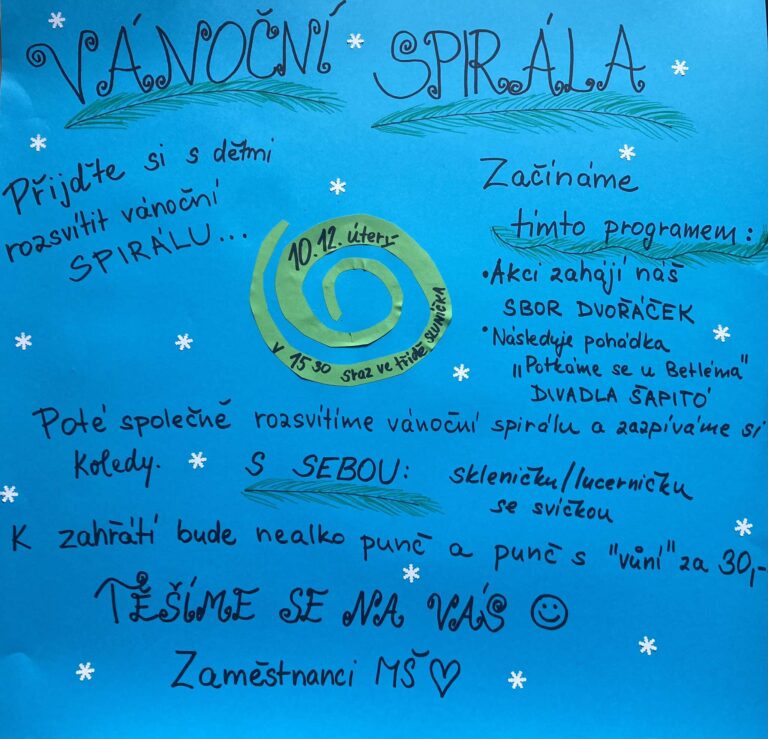 VÁNOČNÍ SPIRÁLA
Přijďte si s dětmi
rozsvítit vánoční
SPIRÁLU...
10.12. úterý
v 15 30 sraz ve třídě SLUNÍČKA
Začínáme
tímto programem:
• Akci zahájí náš
SBOR DVOŘÁČEK
• Následuje pohádka
„Potkáme se u Betléma"
DIVADLA ŠAPITÓ
Poté společně rozsvítíme vánoční spirálu a zazpíváme si
koledy.
S SEBOU: skleničku/lucerničku
se svíčkou
K zahřátí bude nealko punč a punč s "vůní" za 30,-
TĚŠÍME SE NA VÁS ☺
Zaměstnanci MŠ ♡